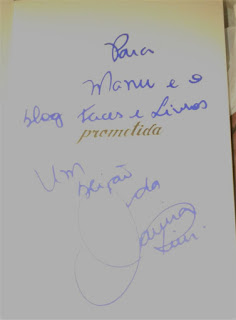 Para
Manu e o
blog Faces e Livros
prometida
Um
beijão
da
Carina
Rissi.